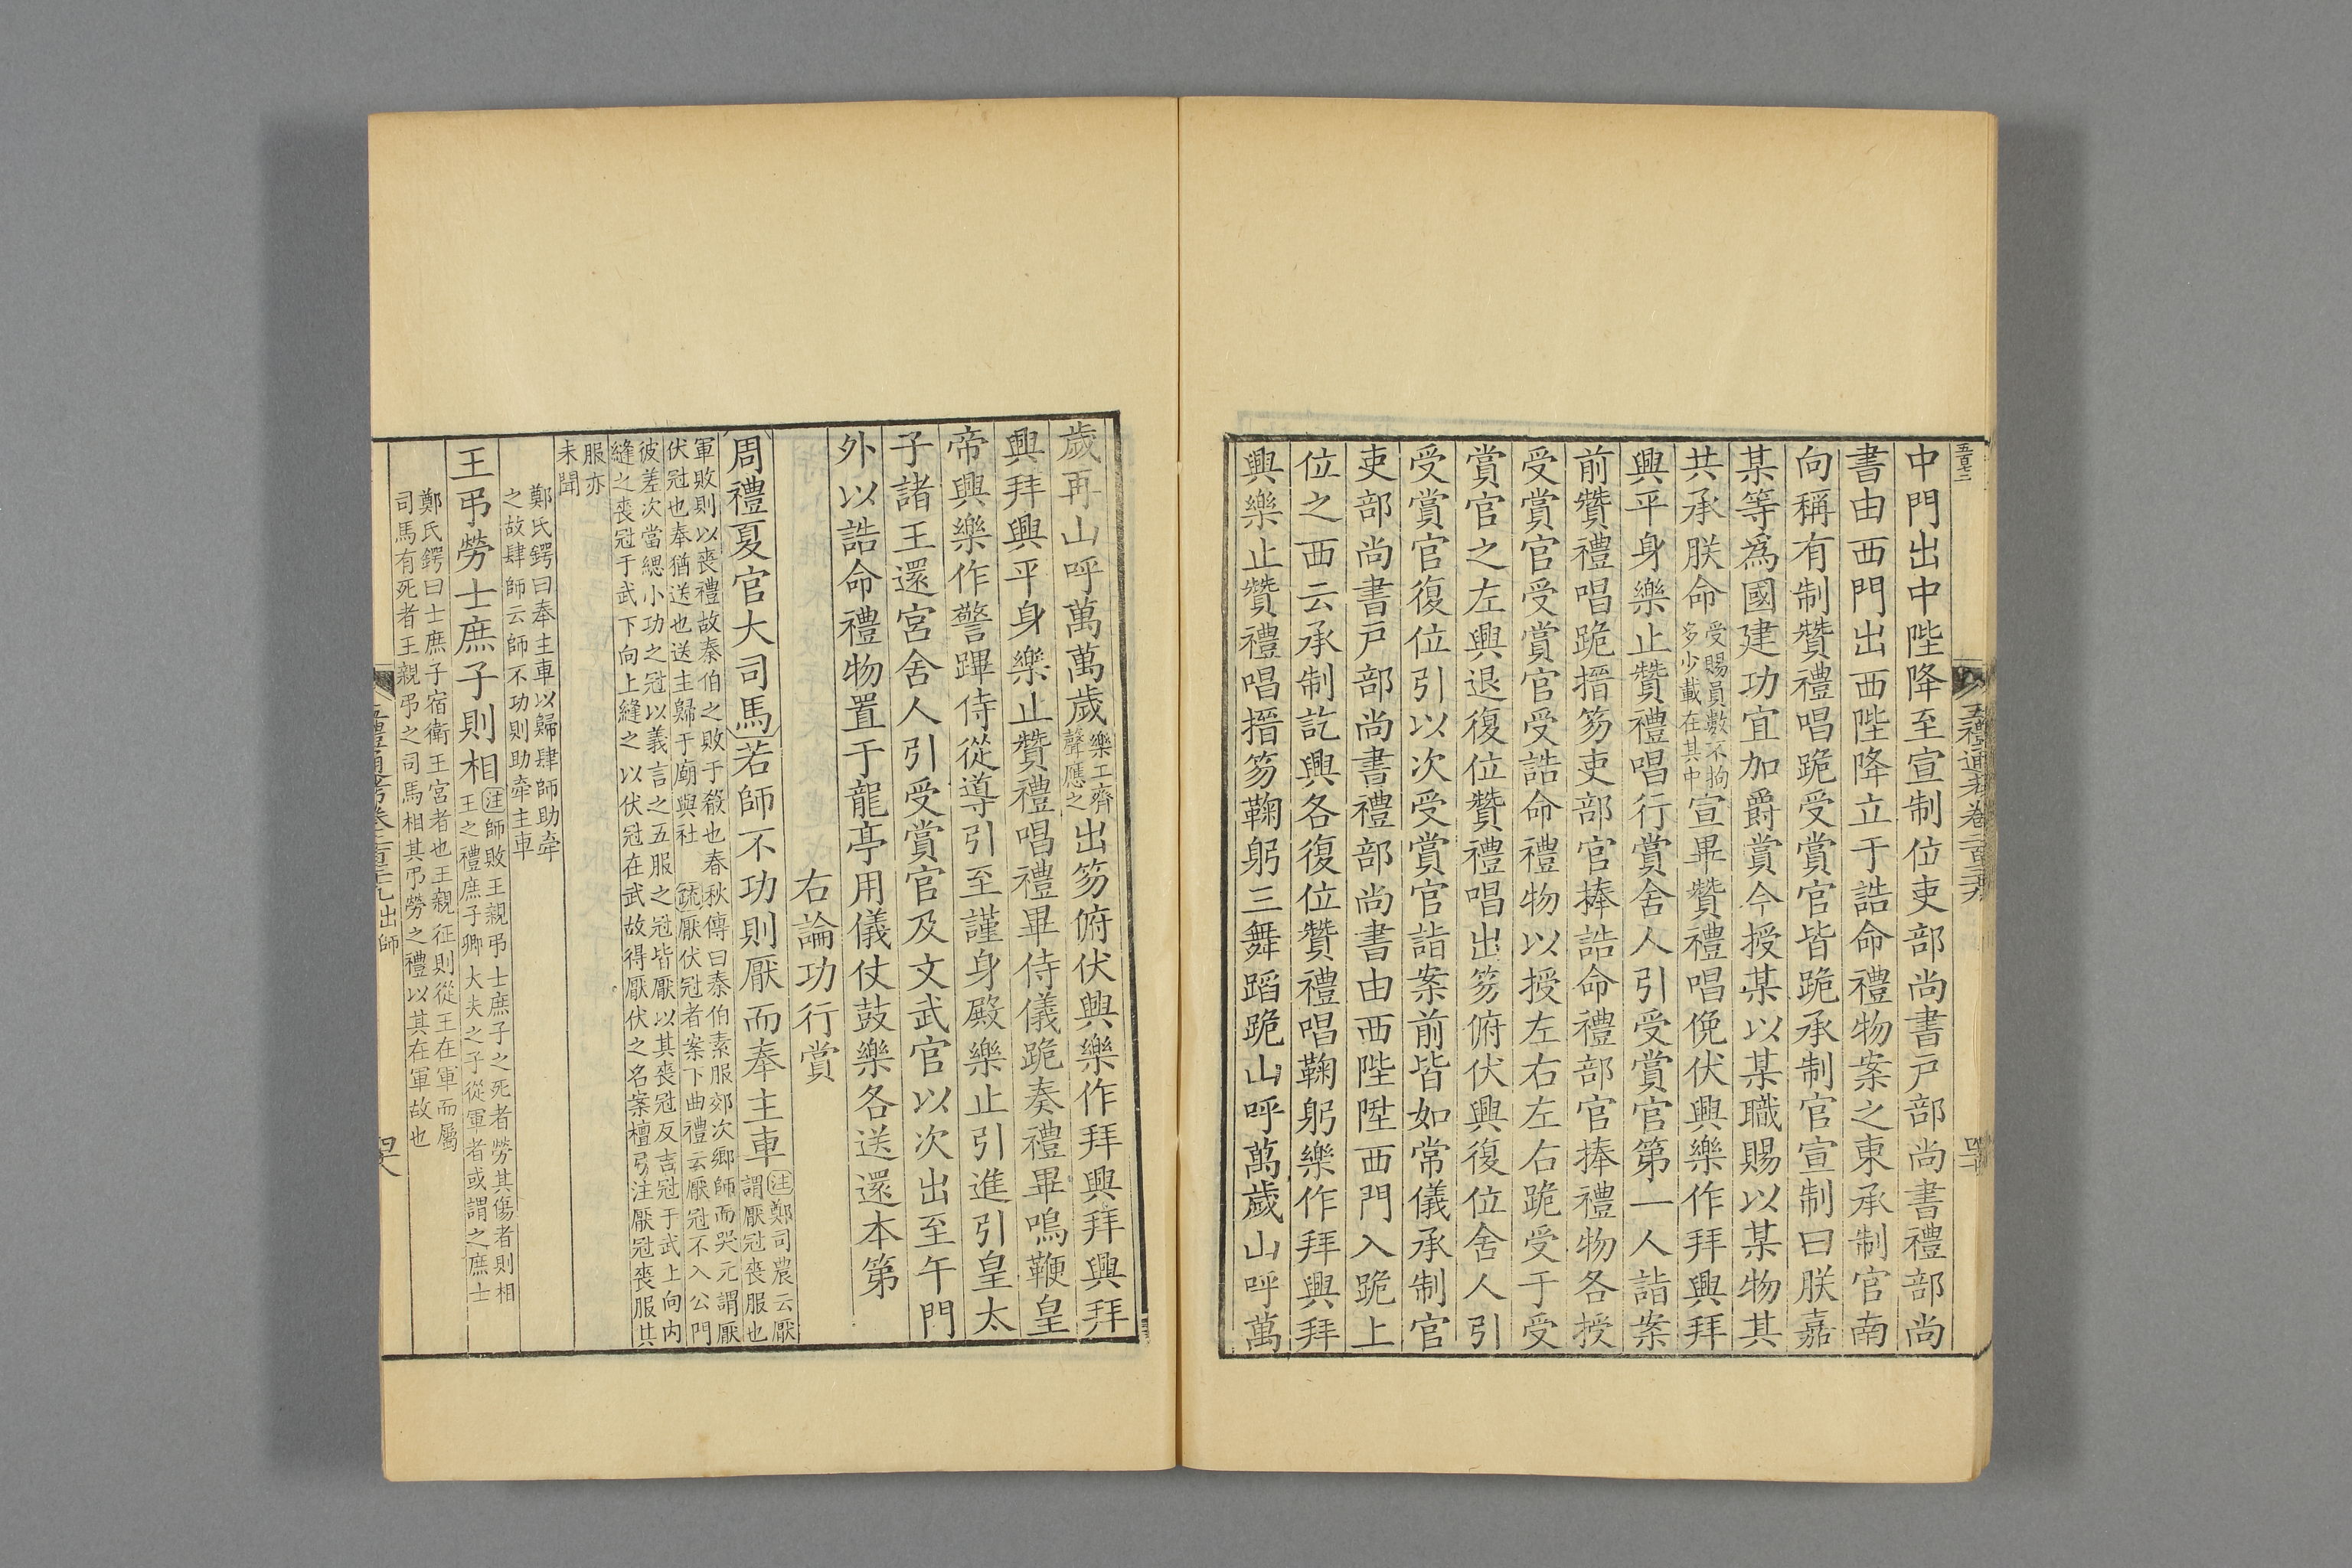 中門出中陛降至宣制位吏部尚書戸部尚書禮部尚
書由西門出西陛降立于誥命禮物案之東承制官南
向稱有制贊禮唱跪受賞官皆跪承制官宣制曰朕嘉
某等爲國建功宜加爵賞今授某以某職賜以某物其
共承朕命受賜員數不拘多少載在其中宣畢贊禮唱俛伏興樂作拜興拜
興平身樂止贊禮唱行賞舍人引受賞官第一人詣案
前贊禮唱跪搢笏吏部官捧誥命禮部官捧禮物各授
受賞官受賞官受誥命禮物以授左右左右跪受于受
賞官之左興退復位贊禮唱出笏俯伏興復位舍人引
受賞官復位引以次受賞官詣案前皆如常儀承制官
吏部尚書戸部尚書禮部尚書由西陛陞西門入跪上
位之西云承制訖興各復位贊禮唱鞠躬樂作拜興拜
興樂止贊禮唱搢笏鞠躬三舞蹈跪山呼萬歲山呼萬
歲再山呼萬萬歲樂工齊聲應之出笏俯伏興樂作拜興拜興拜
興拜興平身樂止贊禮唱禮畢侍儀跪奏禮畢鳴鞭皇
帝興樂作警蹕侍從導引至謹身殿樂止引進引皇太
子諸王還宮舍人引受賞官及文武官以次出至午門
外以誥命禮物置于龍亭用儀仗鼓樂各送還本第
右論功行賞
周禮夏官大司馬若師不功則厭而奉主車注鄭司農云厭謂厭冠喪服也
軍敗則以喪禮故秦伯之敗于殽也春秋傳曰秦伯素服郊次鄉師而哭元謂厭
伏冠也奉猶送也送主歸于廟與社 疏厭伏冠者案下曲禮云厭冠不入公門
彼差次當緦小功之冠以義言之五服之冠皆厭以其喪冠反吉冠于武上向内
縫之喪冠于武下向上縫之以伏冠在武故得厭伏之名案檀弓注厭冠喪服其
服亦未聞
鄭氏鍔曰奉主車以歸肆師助牽
之故肆師云師不功則助牽主車
王弔勞士庶子則相注師敗王親弔士庶子之死者勞其傷者則相王之禮庶子卿大夫之子從軍者或謂之庶士
鄭氏鍔曰士庶子宿衛王宮者也王親征則從王在軍而屬
司馬有死者王親弔之司馬相其弔勞之禮以其在軍故也